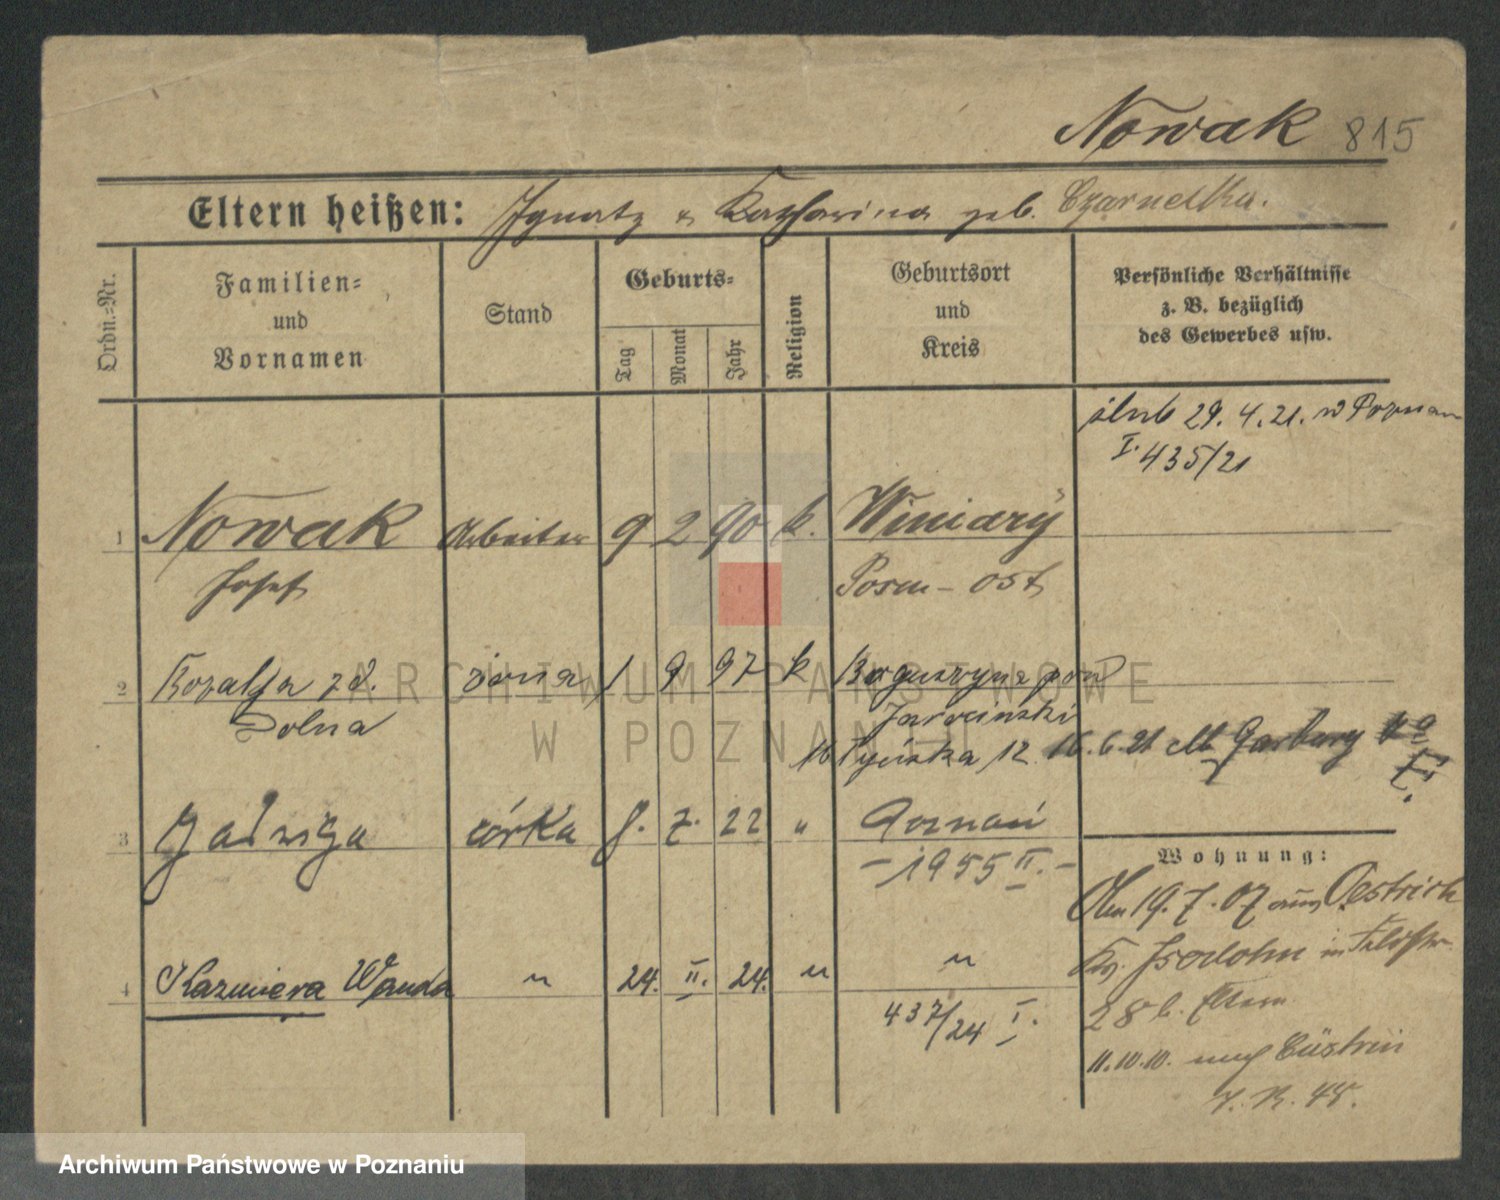 Nowak 815
Eltern heißen: Ignatz u Katharina geb. Czarnetka.
Ordn.-Nr.
Familien- und Vornamen
Stand
Geburts-
Tag
Monat
Jahr
Religion
Geburtsort und Kreis
Persönliche Verhältnisse
z. B. bezüglich
des Gewerbes usw.
ślub 29. 4. 21. w Poznan
I. 435/21
1 Nowak Arbeiter 9 2 90 k. Winiary
Josef Posen - Ost
2 Rozalja zd. żona 1 9 97 k Boguszyn pow
Dolna Jarocinski
12. 16.6.21 Garbary
3 Jadwiga córka 8. 7. 22 " Poznań
- 1955 II. -
Wohnung:
Am 19. 7. 07 aus Oestrich
Kr. Iserlohn in
4 Kazimiera Wanda " 24. II. 24. " "
437/24 I.
28 b. Eltern
11.10.10. nach Cüstrin
I. R. 48.
ARCHIWUM PAŃSTWOWE
W POZNANIU
Archiwum Państwowe w Poznaniu